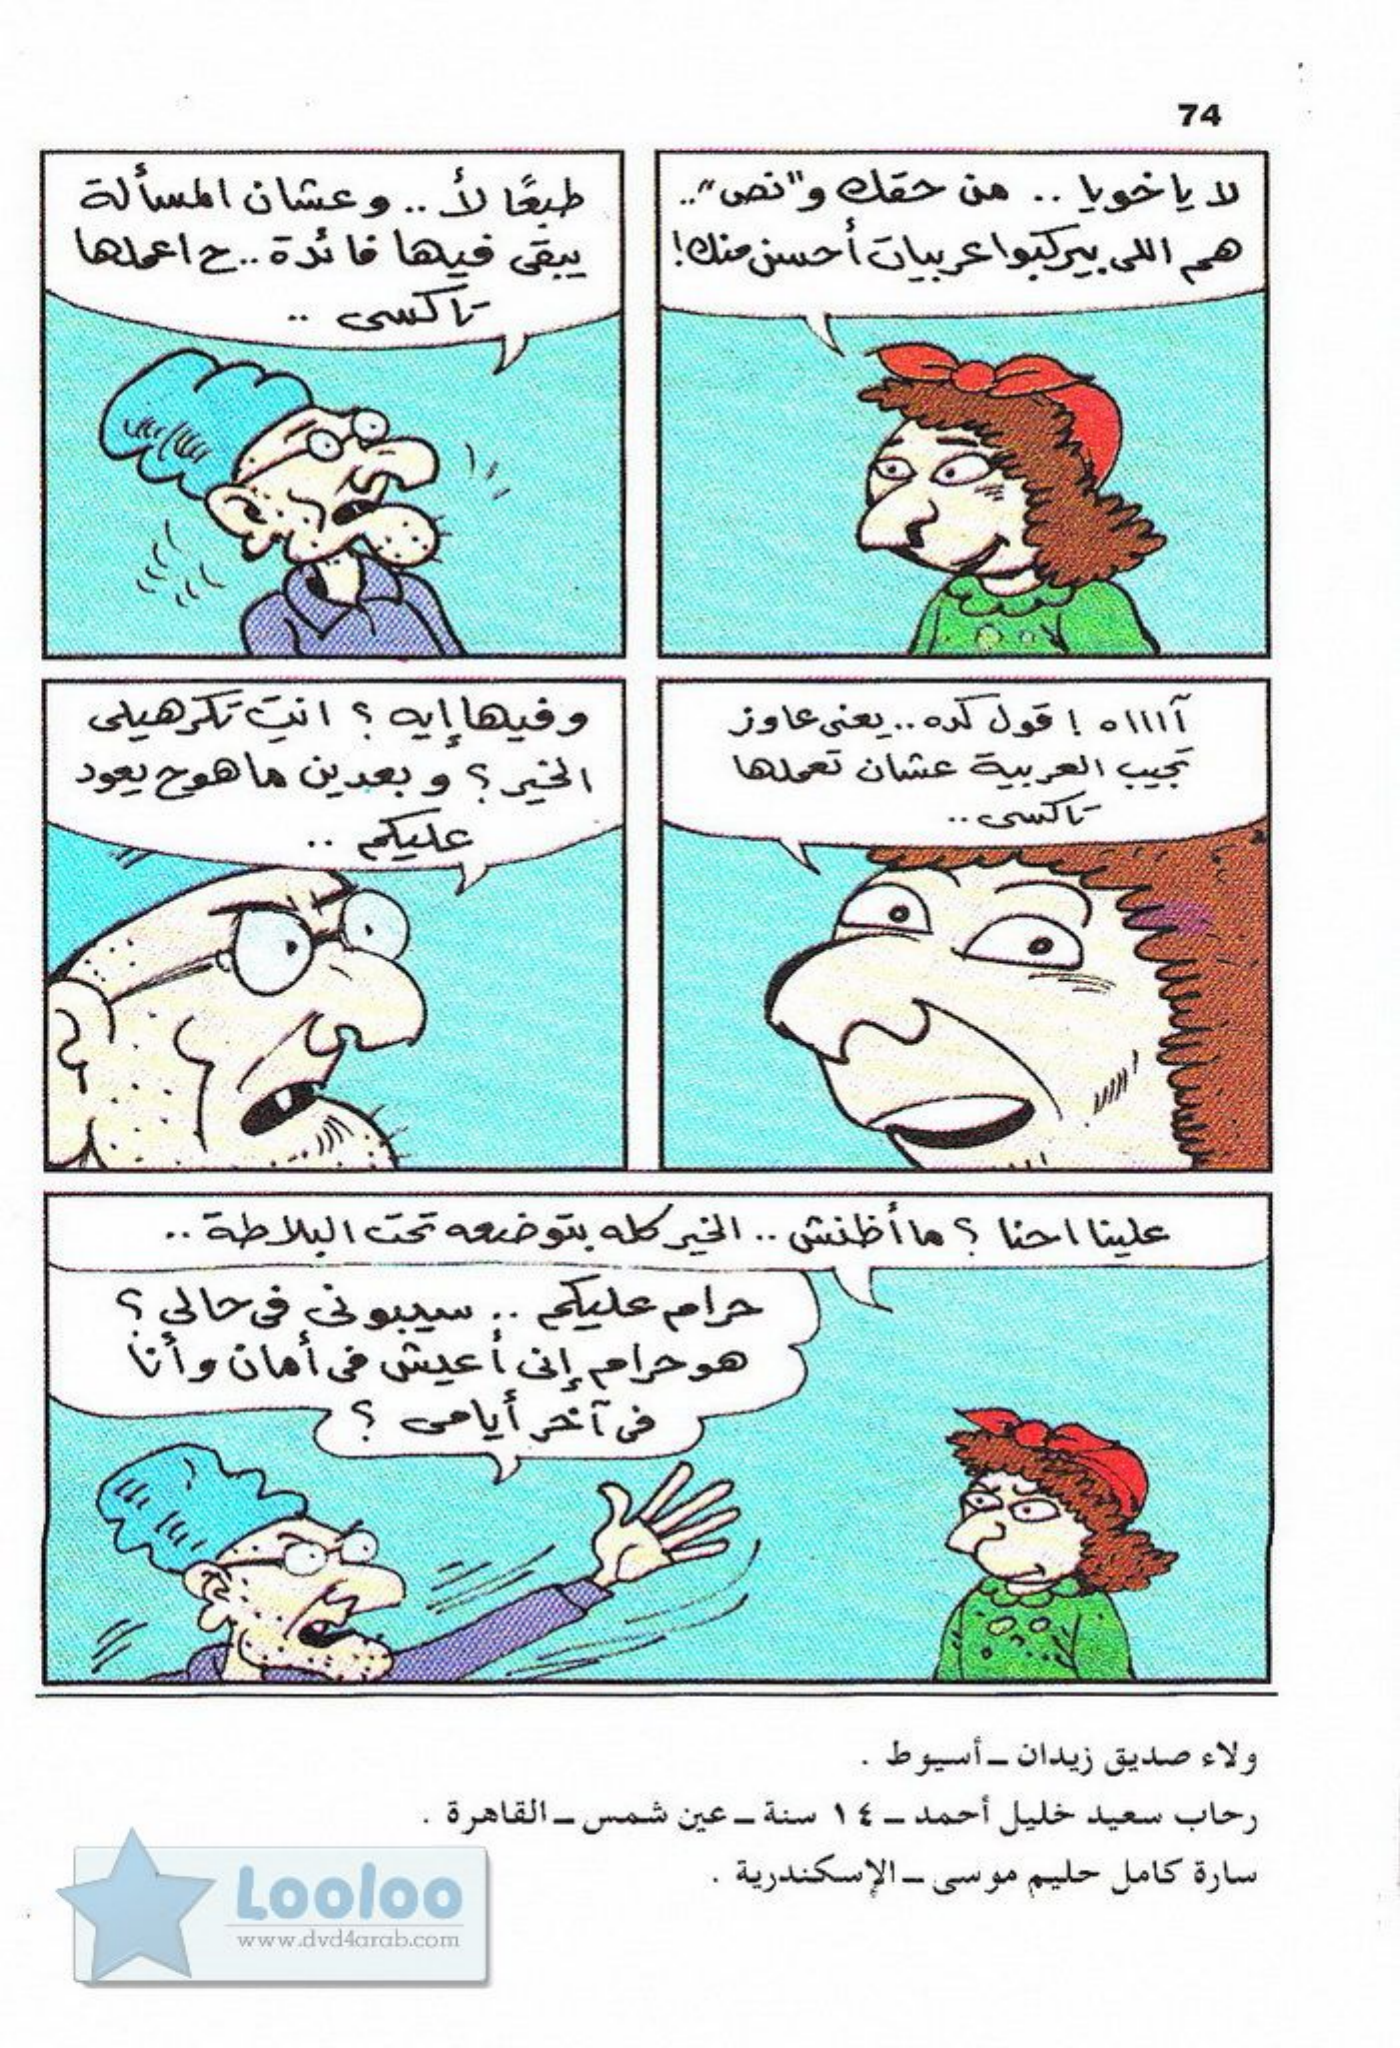 74
لا ياخويا .. من حقك و"نص"..
هم اللى بيركبوا عربيات أحسن منك!
طبعًا لأ .. وعشان المسألة
يبقى فيها فائدة .. ح اعملها
تاكسى ..
آاااه ! قول كده .. يعنى عاوز
تجيب العربية عشان تعملها
تاكسى ..
وفيها إيه ؟ انتِ تكرهيلى
الخير ؟ وبعدين ما هوح يعود
عليكم ..
علينا احنا ؟ ما أظنش .. الخير كله بتوضعه تحت البلاطة ..
حرام عليكم .. سيبونى فى حالى ؟
هو حرام إنى أعيش فى أمان وأنا
فى آخر أيامى ؟
ولاء صديق زيدان ــ أسيوط .
رحاب سعيد خليل أحمد ــ ١٤ سنة ــ عين شمس ــ القاهرة .
سارة كامل حليم موسى ــ الإسكندرية .
Looloo
www.dvd4arab.com